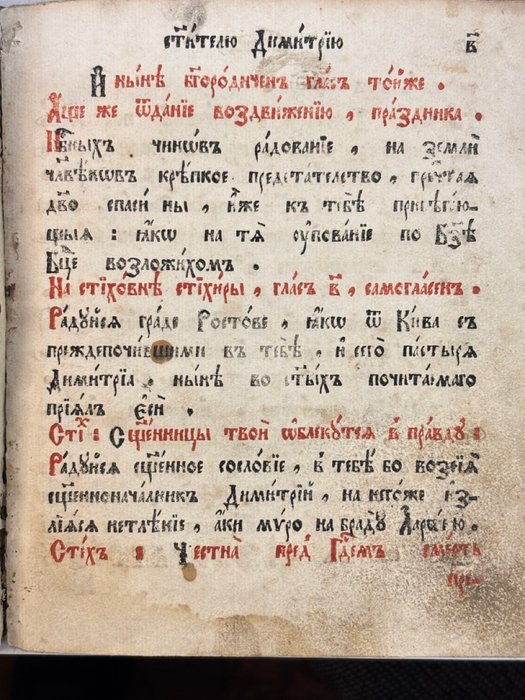 ст҃и́телю Дими́трїю в҃
И҆ ны́нѣ бг҃оро́диченъ гла́съ то́йже .
А҆́ще же ѿда́нїе воздви́женїю , пра́здника .
Нб҃ныхъ чинѡ́въ ра́дованїе , на землѝ
чл҃вѣкѡвъ крѣ́пкое предста́телство , пречⷭ҇тая
дв҃о спасѝ ны , и҆̀же къ тебѣ̀ прибѣга́ю-
щыя : ꙗ҆́кѡ на тѧ̀ ᲂу҆пова́нїе по бз҃ѣ
бц҃е возложи́хомъ .
На стїхо́внѣ стїхи́ры , гла́съ в҃ , самогла́сенъ .
Ра́дуйсѧ гра́де Росто́ве , ꙗ҆́кѡ ѿ Кі́ева съ
преждепочи́вшими въ тебѣ̀ , и҆ сего̀ па́стырѧ
Дими́трїа , ны́нѣ во ст҃ы́хъ почита́емаго
прїѧ́лъ є҆сѝ .
Сті́хъ : Сщ҃е́нницы твоѝ ѡ҆блеку́тсѧ в̾ пра́вду :
Ра́дуйсѧ сщ҃е́нное сосло́вїе , в̾ тебѣ́ бо возсїѧ̀
сщ҃енноначалникъ Дими́трїй , на него́же и҆з-
лїѧ́сѧ нетлѣ́нїе , а҆́ки мѵ́ро на браду̀ А҆арѡ́ню .
Сті́хъ : Честна̀ пред̾ Гдⷭ҇емъ сме́рть
пре-